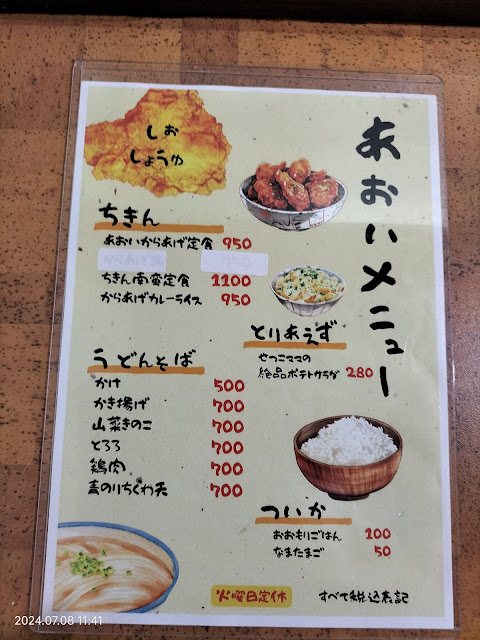 あおいメニュー
しお
しょうゆ
ちきん
あおいからあげ定食 950
ちきん南蛮定食 1100
からあげカレーライス 950
とりあえず
せつこママの
絶品ポテトサラダ 280
うどんそば
かけ 500
かき揚げ 700
山菜きのこ 700
とろろ 700
鶏肉 700
青のりちくわ天 700
ついか
おおもりごはん 100
なまたまご 50
火曜日定休
すべて税込表記
2024.07.08 11:41